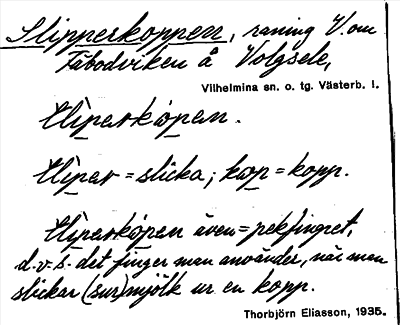 Slipperskoppen, raning V. om
Fäbodviken å Volgsele,
Vilhelmina sn. o. tg. Västerb. l.
Slìperskópen.
Slìper = slicka; kop = kopp.
Slìperskópen även = pekfingret,
d.v.s. det finger man använder, när man
slickar (sur)mjölk ur en kopp.
Thorbjörn Eliasson, 1935.